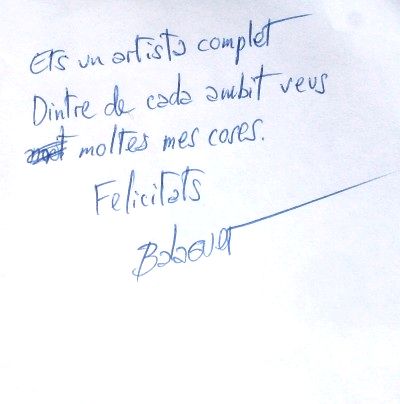 Ets un artista complet
Dintre de cada ambit veus
moltes mes coses.
Felicitats